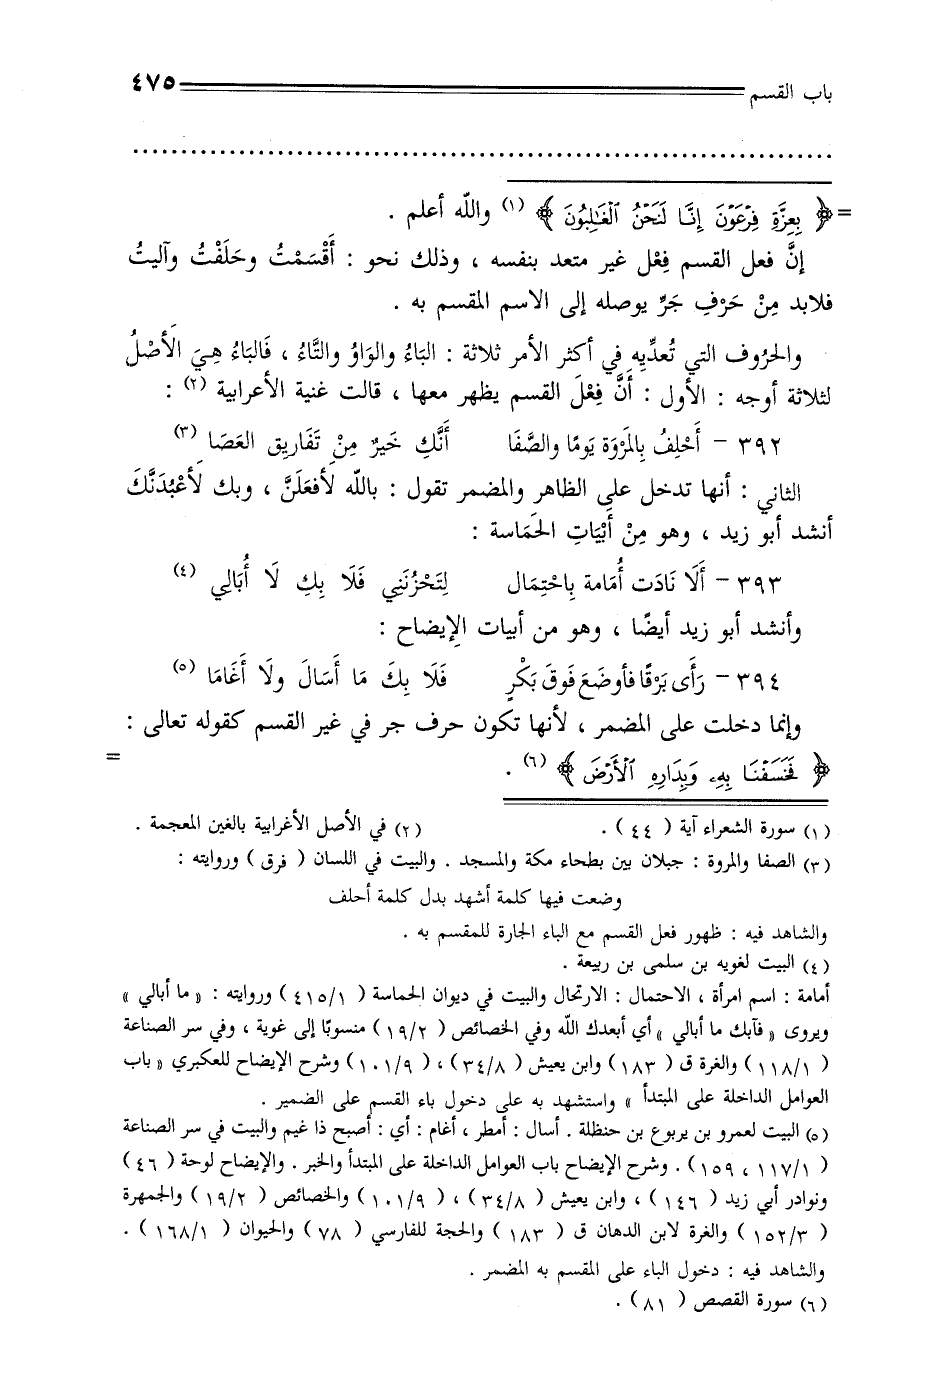 باب القسم ٤٧٥
= ﴿ بِعِزَّةِ فِرْعَوْنَ إِنَّا لَنَحْنُ ٱلْغَٰلِبُونَ ﴾ (١) والله أعلم .
إنَّ فعل القسم فِعْل غير متعد بنفسه ، وذلك نحو : أَقْسَمْتُ وحَلَفْتُ وآليتُ
فلابد مِنْ حَرْفِ جَرٍّ يوصله إلى الاسم المقسم به .
والحرُوف التي تُعدِّيه في أكثر الأمر ثلاثة : البَاءُ والوَاوُ والتَّاءُ ، فَالبَاءُ هِيَ الأَصْلُ
لثلاثة أوجه : الأول : أَنَّ فِعْلَ القسم يظهر معها ، قالت غنية الأعرابية (٢) :
٣٩٢ – أَحْلِفُ بِالمَرْوَة يَومًا والصَّفَا أَنَّكِ خَيرٌ مِنْ تَفَاريِق العَصَا (٣)
الثاني : أنها تدخل على الظاهر والمضمر تقول : بالله لأَفعَلَنَّ ، وبك لَأَعْبُدَنَّكَ
أنشد أبو زيد ، وهو مِنْ أَبْيَاتِ الحَمَاسة :
٣٩٣ – أَلَا نَادَت أُمَامة بِاحْتِمَال لِتَحْزُنَنِي فَلَا بِكِ لَا أُبَالِي (٤)
وأنشد أبو زيد أيضًا ، وهو من أبيات الإيضاح :
٣٩٤ – رَأَى بَرْقًا فأوضَعَ فَوقَ بَكْرٍ فَلَا بِكَ مَا أَسَالَ ولَا أَغَامَا (٥)
وإنما دخلت على المضمر ، لأنها تكون حرف جر في غير القسم كقوله تعالى :
﴿ فَخَسَفْنَا بِهِۦ وَبِدَارِهِ ٱلْأَرْضَ ﴾ (٦) . =
(١) سورة الشعراء آية ( ٤٤ ) . (٢) في الأصل الأغرابية بالغين المعجمة .
(٣) الصفا والمروة : جبلان بين بطحاء مكة والمسجد . والبيت في اللسان ( فرق ) وروايته :
وضعت فيها كلمة أشهد بدل كلمة أحلف
والشاهد فيه : ظهور فعل القسم مع الباء الجارة للمقسم به .
(٤) البيت لغويه بن سلمى بن ربيعة .
أمامة : اسم امرأة ، الاحتمال : الارتحال والبيت في ديوان الحماسة ( ٤١٥/١ ) وروايته : « ما أبالي »
ويروى « فآبك ما أبالي » أي أبعدك الله وفي الخصائص ( ١٩/٢ ) منسوبًا إلى غوية ، وفي سر الصناعة
( ١١٨/١ ) والغرة ق ( ١٨٣ ) وابن يعيش ( ٣٤/٨ ) ، ( ١٠١/٩ ) وشرح الإيضاح للعكبري « باب
العوامل الداخلة على المبتدأ » واستشهد به على دخول باء القسم على الضمير .
(٥) البيت لعمرو بن يربوع بن حنظلة . أسال : أمطر ، أغام : أي : أصبح ذا غيم والبيت في سر الصناعة
( ١١٧/١ ، ١٥٩ ) . وشرح الإيضاح باب العوامل الداخلة على المبتدأ والخبر . والإيضاح لوحة ( ٤٦ )
ونوادر أبي زيد ( ١٤٦ ) ، وابن يعيش ( ٣٤/٨ ) ، ( ١٠١/٩ ) والخصائص ( ١٩/٢ ) والجمهرة
( ١٥٢/٣ ) والغرة لابن الدهان ق ( ١٨٣ ) والحجة للفارسي ( ٧٨ ) والحيوان ( ١٦٨/١ ) .
والشاهد فيه : دخول الباء على المقسم به المضمر .
(٦) سورة القصص ( ٨١ ) .